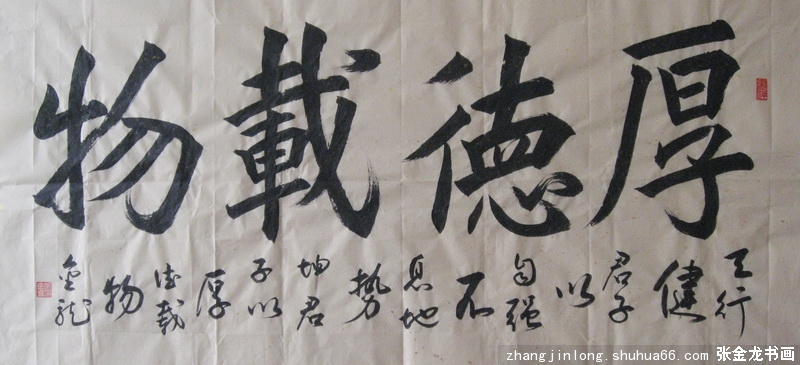 厚德載物
天行健君子以自强不息地勢坤君子以厚德载物
金龙
zhangjinlong.shuhua66.com 张金龙书画